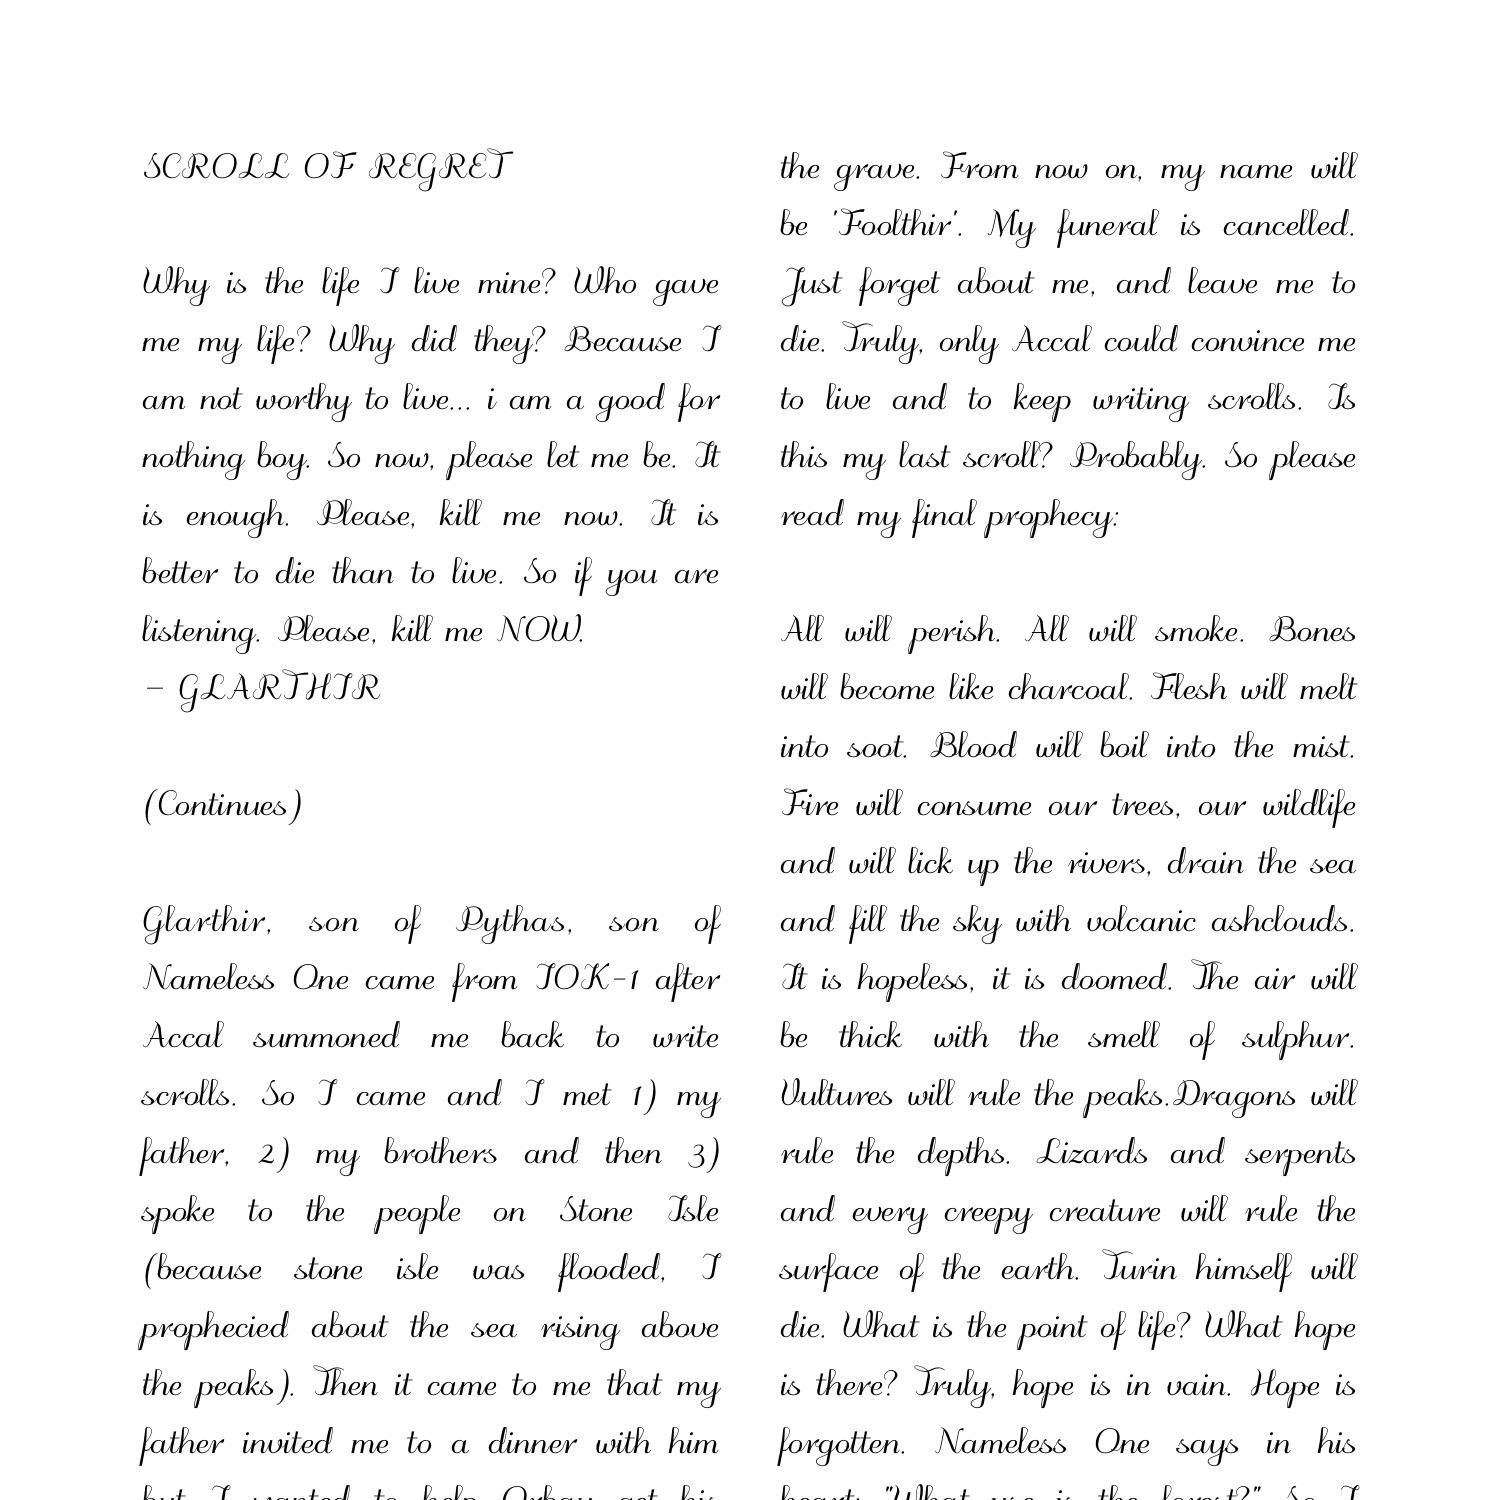 SCROLL OF REGRET
Why is the life I live mine? Who gave
me my life? Why did they? Because I
am not worthy to live... i am a good for
nothing boy. So now, please let me be. It
is enough. Please, kill me now. It is
better to die than to live. So if you are
listening. Please, kill me NOW.
- GLARTHIR
(Continues)
Glarthir, son of Pythas, son of
Nameless One came from IOK-1 after
Accal summoned me back to write
scrolls. So I came and I met 1) my
father, 2) my brothers and then 3)
spoke to the people on Stone Isle
(because stone isle was flooded, I
prophecied about the sea rising above
the peaks). Then it came to me that my
father invited me to a dinner with him
but I wanted to help Orbay get his
the grave. From now on, my name will
be 'Foolthir'. My funeral is cancelled.
Just forget about me, and leave me to
die. Truly, only Accal could convince me
to live and to keep writing scrolls. Is
this my last scroll? Probably. So please
read my final prophecy:
All will perish. All will smoke. Bones
will become like charcoal. Flesh will melt
into soot. Blood will boil into the mist.
Fire will consume our trees, our wildlife
and will lick up the rivers, drain the sea
and fill the sky with volcanic ashclouds.
It is hopeless, it is doomed. The air will
be thick with the smell of sulphur.
Vultures will rule the peaks.Dragons will
rule the depths. Lizards and serpents
and every creepy creature will rule the
surface of the earth. Turin himself will
die. What is the point of life? What hope
is there? Truly, hope is in vain. Hope is
forgotten. Nameless One says in his
heart: "What use is the forest?" So I